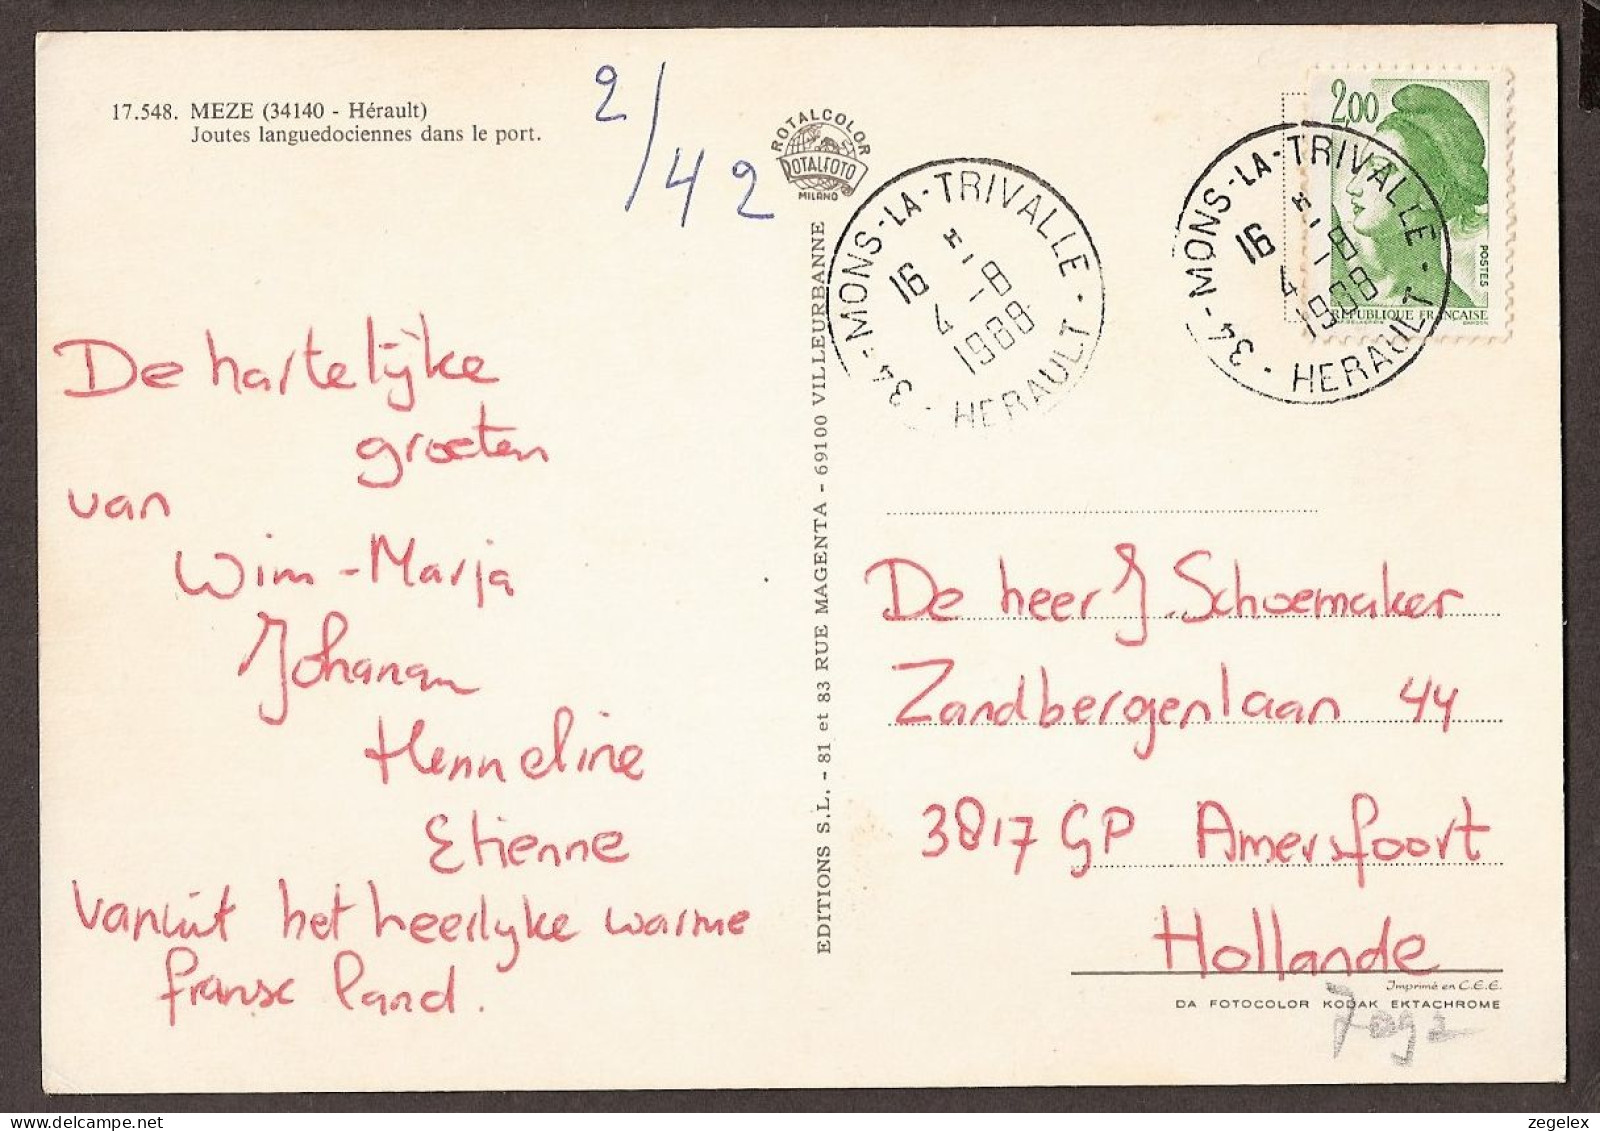 17.548. MEZE (34140 - Hérault)
Joutes languedociennes dans le port.
2/42
ROTALCOLOR
ROTALFOTO
MILANO
34 - MONS-LA-TRIVALLE - HERAULT
16 H
4 - 8
1988
34 - MONS-LA-TRIVALLE - HERAULT
16 H
4 - 8
1988
2,00
POSTES
REPUBLIQUE FRANÇAISE
De hartelijke
groeten
van
Wim - Marja
Johanan
Henneline
Etienne
vanuit het heerlijke warme
franse land.
EDITIONS S.L. - 81 et 83 RUE MAGENTA - 69100 VILLEURBANNE
De heer J. Schoemaker
Zandbergenlaan 44
3817 GP Amersfoort
Hollande
Imprimé en C.E.E.
DA FOTOCOLOR KODAK EKTACHROME
zegelex